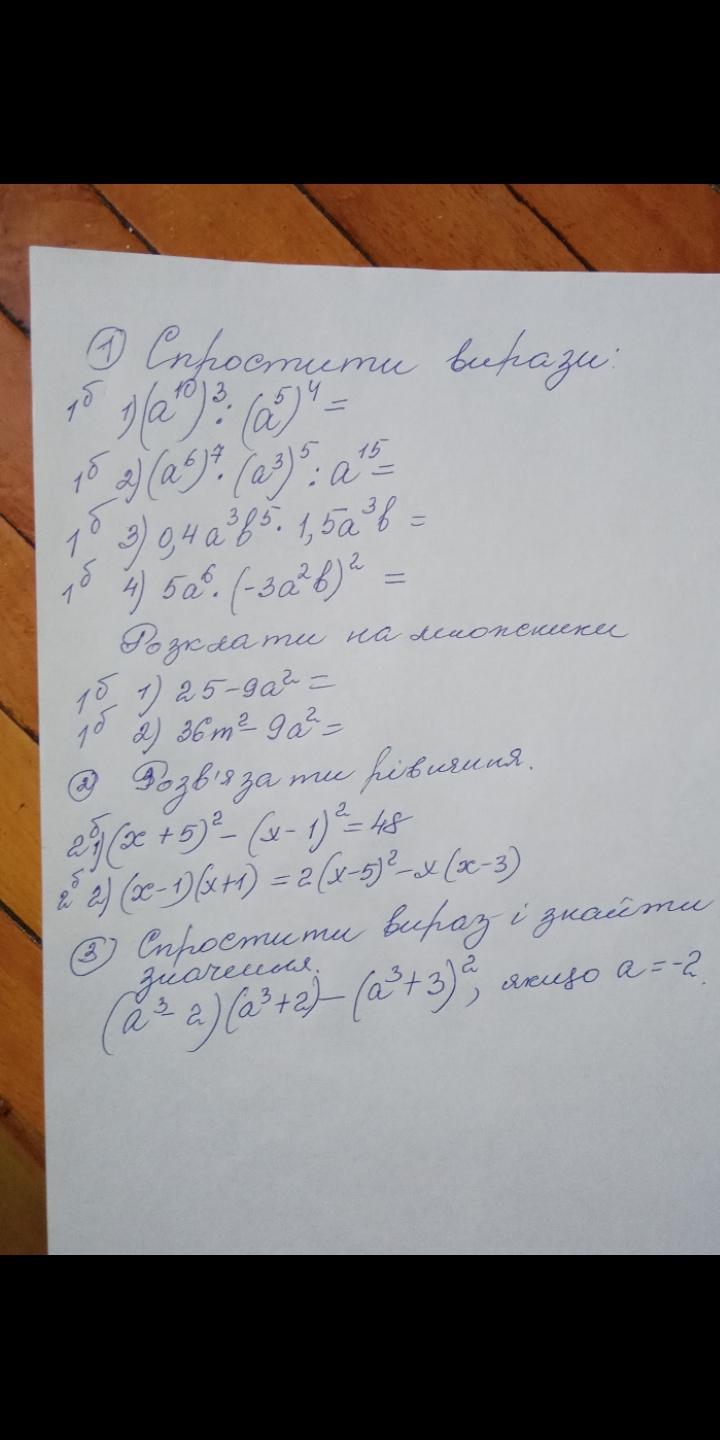 ① Спростити вирази:
1б 1) (a¹⁰)³ : (a⁵)⁴ =
1б 2) (a⁶)⁷ · (a³)⁵ : a¹⁵ =
1б 3) 0,4a³b⁵ · 1,5a³b =
1б 4) 5a⁶ · (-3a²b)² =
Розкласти на множники
1б 1) 25 - 9a² =
1б 2) 36m² - 9a² =
② Розв'язати рівняння.
2б 1) (x + 5)² - (x - 1)² = 48
2б 2) (x-1)(x+1) = 2(x-5)² - x(x-3)
③ Спростити вираз і знайти
значення.
(a³ - 2)(a³ + 2) - (a³ + 3)², якщо a = -2.